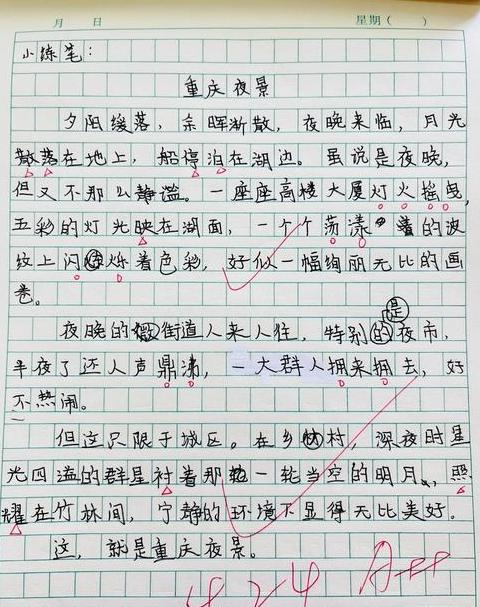 月 日 星期（ ）
小练笔：
重庆夜景
夕阳缓落，余晖渐散，夜晚来临，月光
散落在地上，船停泊在湖边。虽说是夜晚，
但又不那么静谧。一座座高楼大厦灯火摇曳，
五彩的灯光映在湖面，一个个荡漾着的波
纹上闪烁着色彩，好似一幅绚丽无比的画
卷。
是
夜晚的街道人来人往，特别的夜市，
半夜了还人声鼎沸，一大群人拥来拥去，好
不热闹。
但这只限于城区。在乡村，深夜时星
光四溢的群星衬着那一轮当空的明月，照
耀在竹林间，宁静的环境下显得无比美好。
这，就是重庆夜景。
4.24 A++